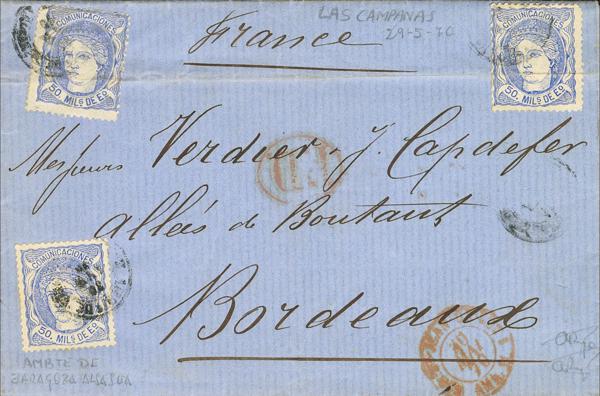 COMUNICACIONES
50. MILS DE EO
LAS CAMPANAS
29-5-70
COMUNICACIONES
50. MILS DE EO
France
Messieurs Verdier & J. Capdefer
P.D
allées de Boutaut
Bordeaux
COMUNICACIONES
50. MILS DE EO
AMBTE DE
ZARAGOZA ALSASUA